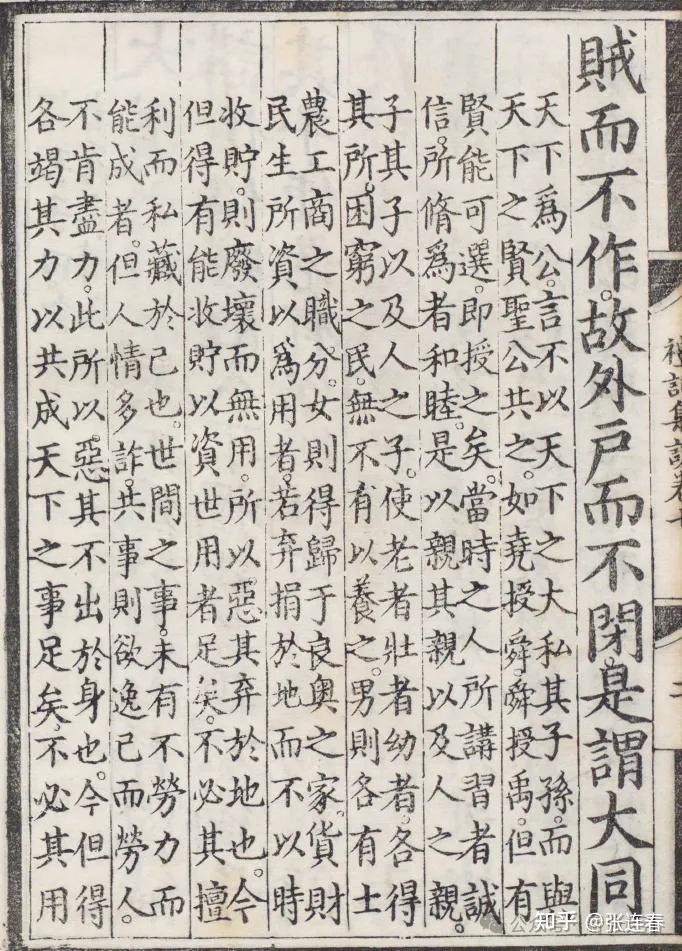 賊而不作。故外戶而不閉。是謂大同
天下爲公。言不以天下之大私其子孫。而與
天下之賢聖公共之。如堯授舜。舜授禹。但有
賢能可選。即授之矣。當時之人所講習者誠
信。所脩爲者和睦。是以親其親以及人之親。
子其子以及人之子。使老者壯者幼者。各得
其所。困窮之民。無不有以養之。男則各有士
農工商之職分。女則得歸于良奧之家。貨財
民生所資以爲用者。若弃捐於地而不以時
收貯。則廢壞而無用。所以惡其弃於地也。今
但得有能收貯以資世用者足矣。不必其擅
利而私藏於己也。世間之事。未有不勞力而
能成者。但人情多詐。共事則欲逸己而勞人。
不肯盡力。此所以惡其不出於身也。今但得
各竭其力以共成天下之事足矣不必其用
知乎 @张连春